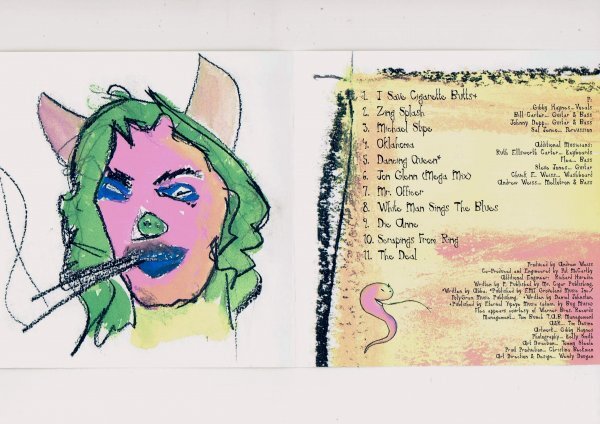 1. I Save Cigarette Butts+
2. Zing Splash
3. Michael Stipe
4. Oklahoma
5. Dancing Queen*
6. Jon Glenn (Mega Mix)
7. Mr. Officer
8. White Man Sings The Blues
9. Die Anne
10. Scrapings From Ring
11. The Deal
P:
Gibby Haynes... Vocals
Bill Carter... Guitar & Bass
Johnny Depp... Guitar & Bass
Sal Jenco... Percussion
Additional Musicians:
Ruth Ellsworth Carter... Keyboards
Flea... Bass
Steve Jones... Guitar
Chuck E. Weiss... Washboard
Andrew Weiss... Mellotron & Bass
Produced by Andrew Weiss
Co-Produced and Engineered by Bil McCarthy
Additional Engineer: Richard
Written by P. Published by Mr. Cigar Publishing.
*Written by Abba. *Published by EMI Grove Music Inc./
PolyGram Music Publishing. +Written by Daniel Johnston.
+Published by Eternal Yip Music
Flea appears courtesy of Warner Bros. Records
Management... Tom Bunch T.A.B. Management
A&R... Tim
Artwork... Gibby Haynes
Photography...
Art Direction... Tommy Steele
Print Production... Christina
Art Direction & Design... Wendy Dougan